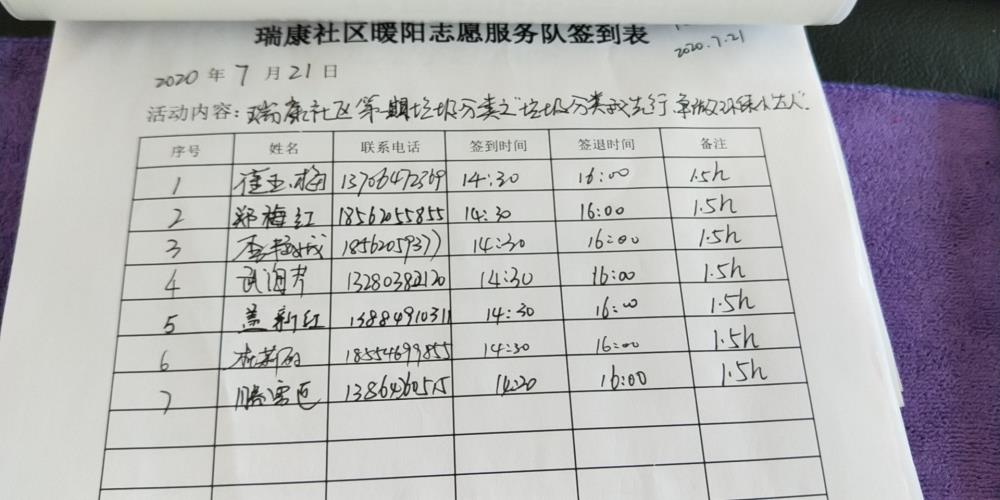 瑞康社区暖阳志愿服务队签到表
2020.7.21
2020 年 7 月 21 日
活动内容：瑞康社区第一期垃圾分类之"垃圾分类我先行 争做环保小达人"
序号 姓名 联系电话 签到时间 签退时间 备注
1 崔玉梅 13706472369 14:30 16:00 1.5h
2 郑梅红 18562055855 14:30 16:00 1.5h
3 18562059377 14:30 16:00 1.5h
4 武海芹 13280382120 14:30 16:00 1.5h
5 盖新红 13884910311 14:30 16:00 1.5h
6 18554699855 14:30 16:00 1.5h
7 13864360515 14:30 16:00 1.5h